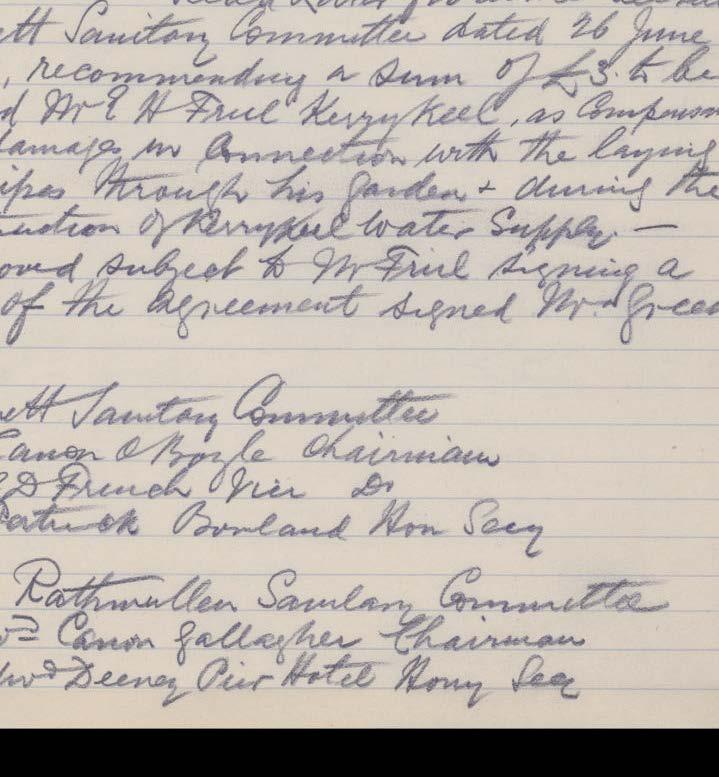 ett Sanitary Committee dated 26 June
, recommending a sum of £3. to be
d Mr E H Friel Kerrykeel, as Compensa
damages in Connection with the laying
ipes through his garden + during the
ruction of Kerrykeel Water Supply —
oved subject to Mr Friel signing a
of the agreement signed Mr. Green
ett Sanitary Committee
Canon O Boyle Chairman
D French Vice Do
Patrick Borland Hon Secy
Rathmullen Sanitary Committee
vd Canon Gallagher Chairman
dwd Deeney Pier Hotel Hony Sec